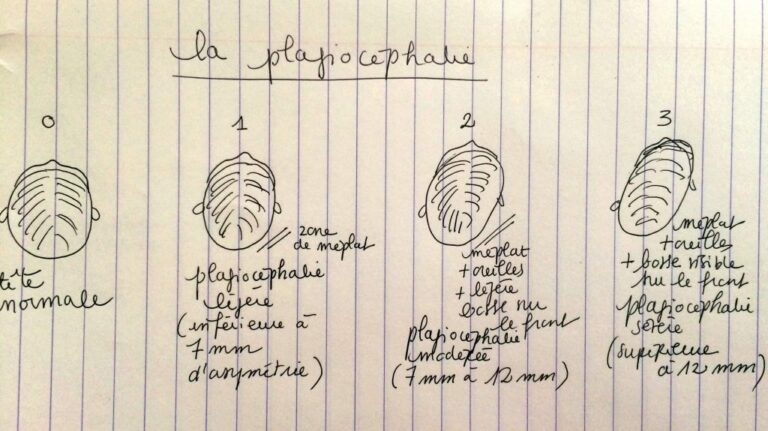 la plagiocéphalie
0
tête
normale
1
zone
de méplat
plagiocéphalie
légère
(inférieure à
7 mm
d'asymétrie)
2
méplat
+ oreilles
+ légère
bosse sur
le front
plagiocéphalie
modérée
(7 mm à 12 mm)
3
méplat
+ oreilles
+ bosse visible
sur le front
plagiocéphalie
sévère
(supérieure
à 12 mm)